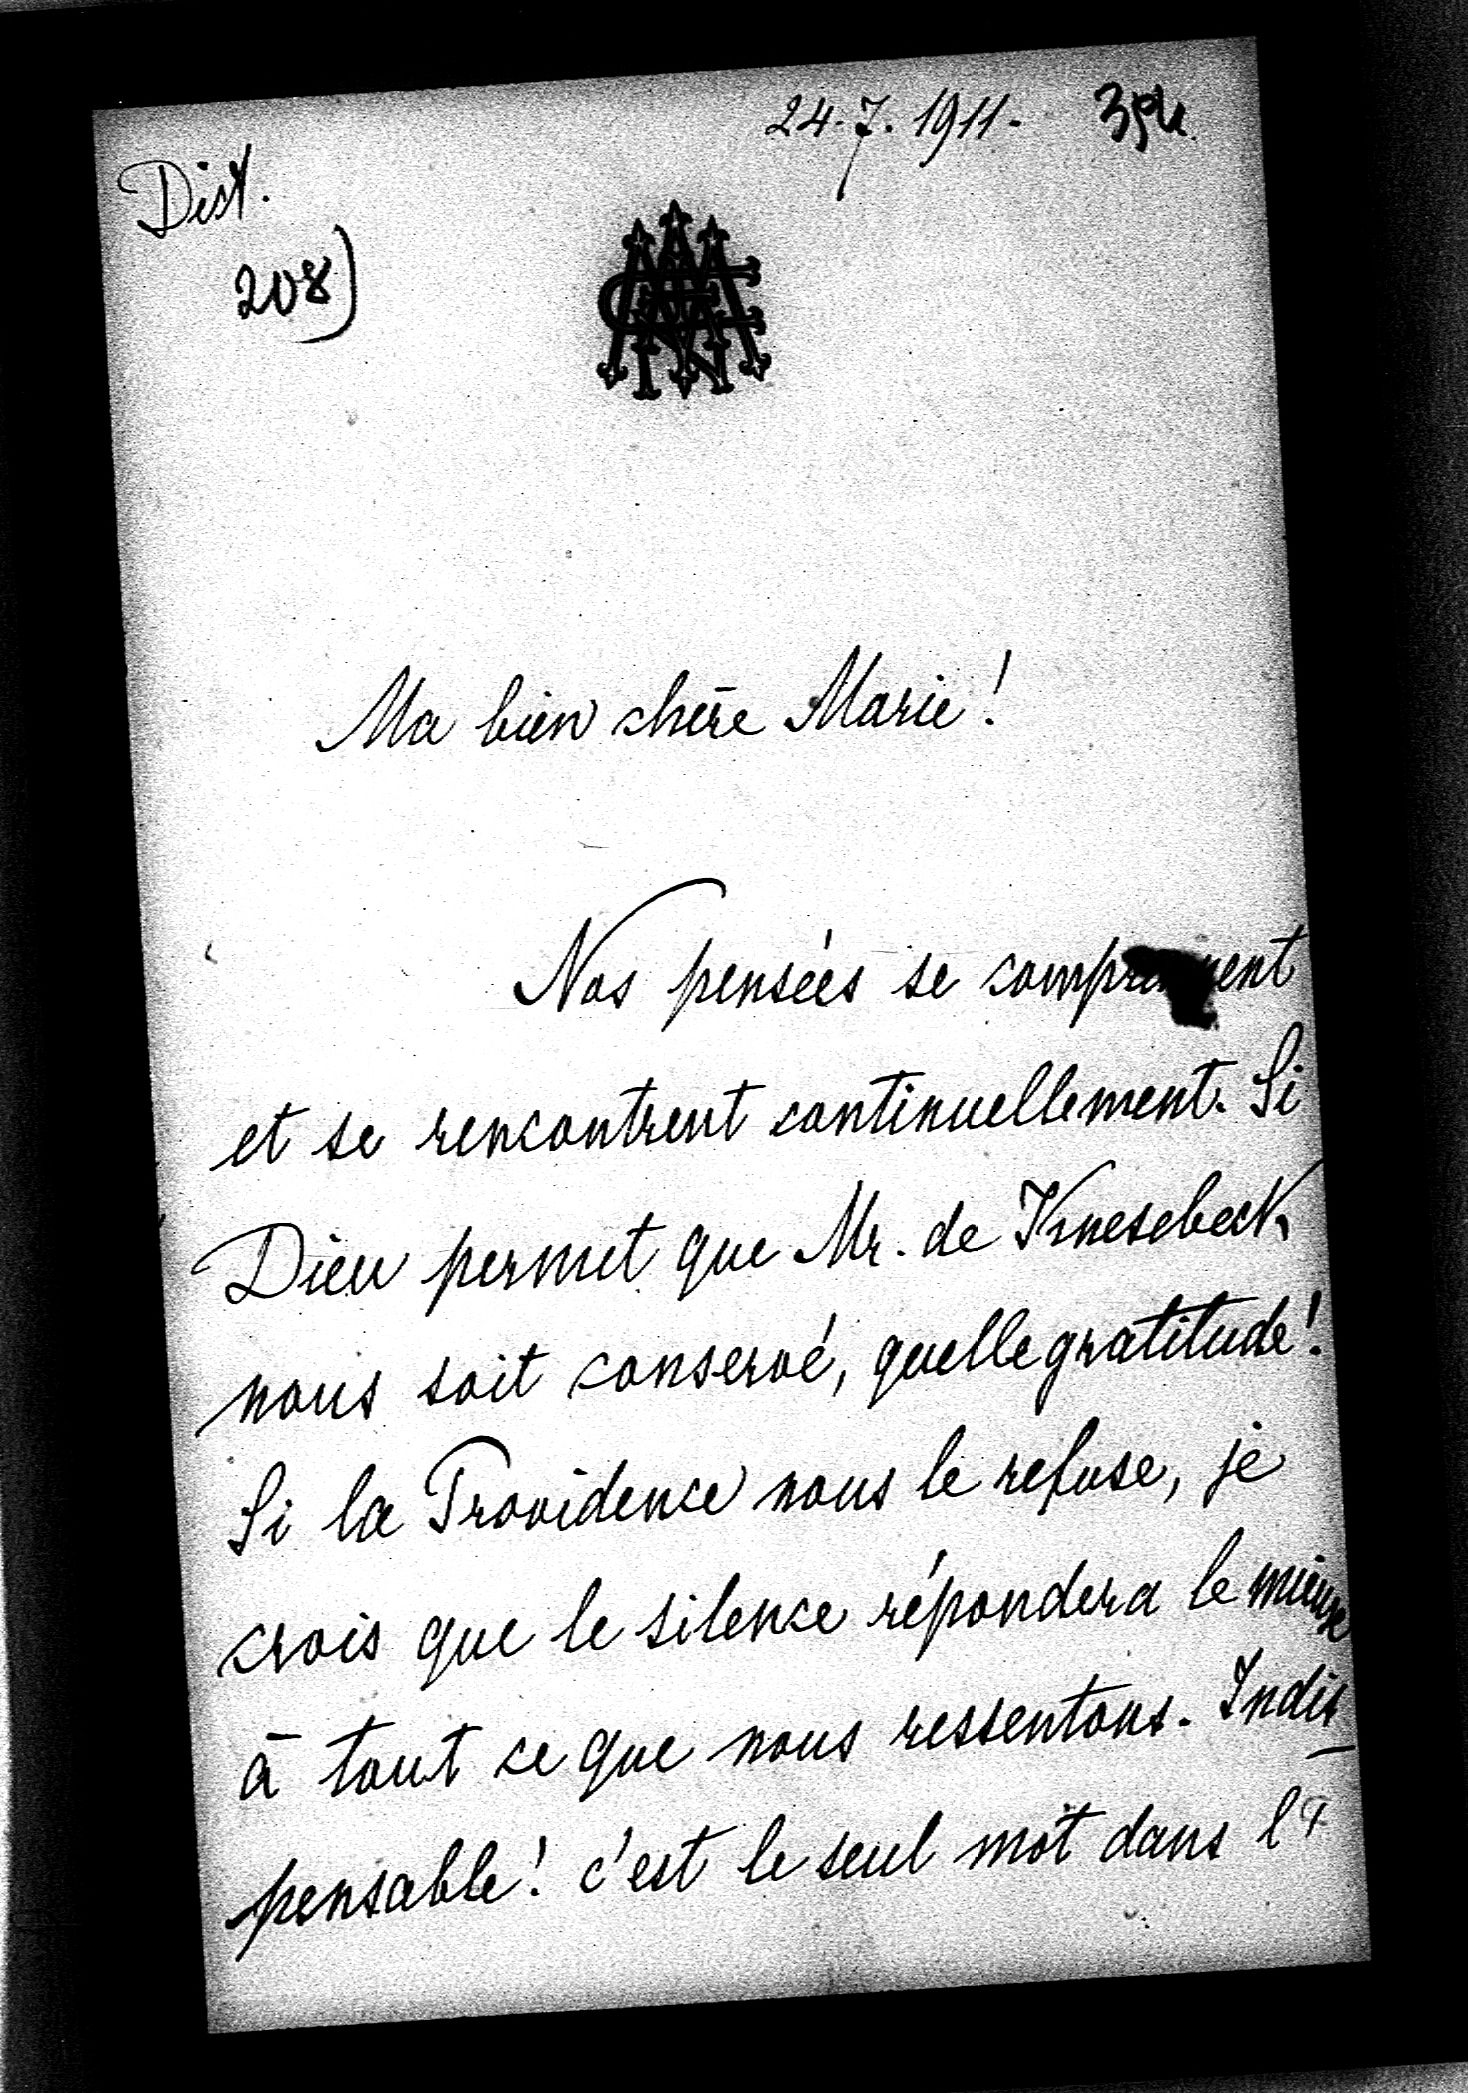 24.7.1911.
Dict.
208)
Ma bien chère Marie!
Nos pensées se comprennent
et se rencontrent continuellement. Si
Dieu permet que Mr. de Knesebeck
nous soit conservé, quelle gratitude!
Si la Providence nous le refuse, je
crois que le silence répondera le mieux
à tout ce que nous ressentons. Indis
pensable! c'est le seul mot dans